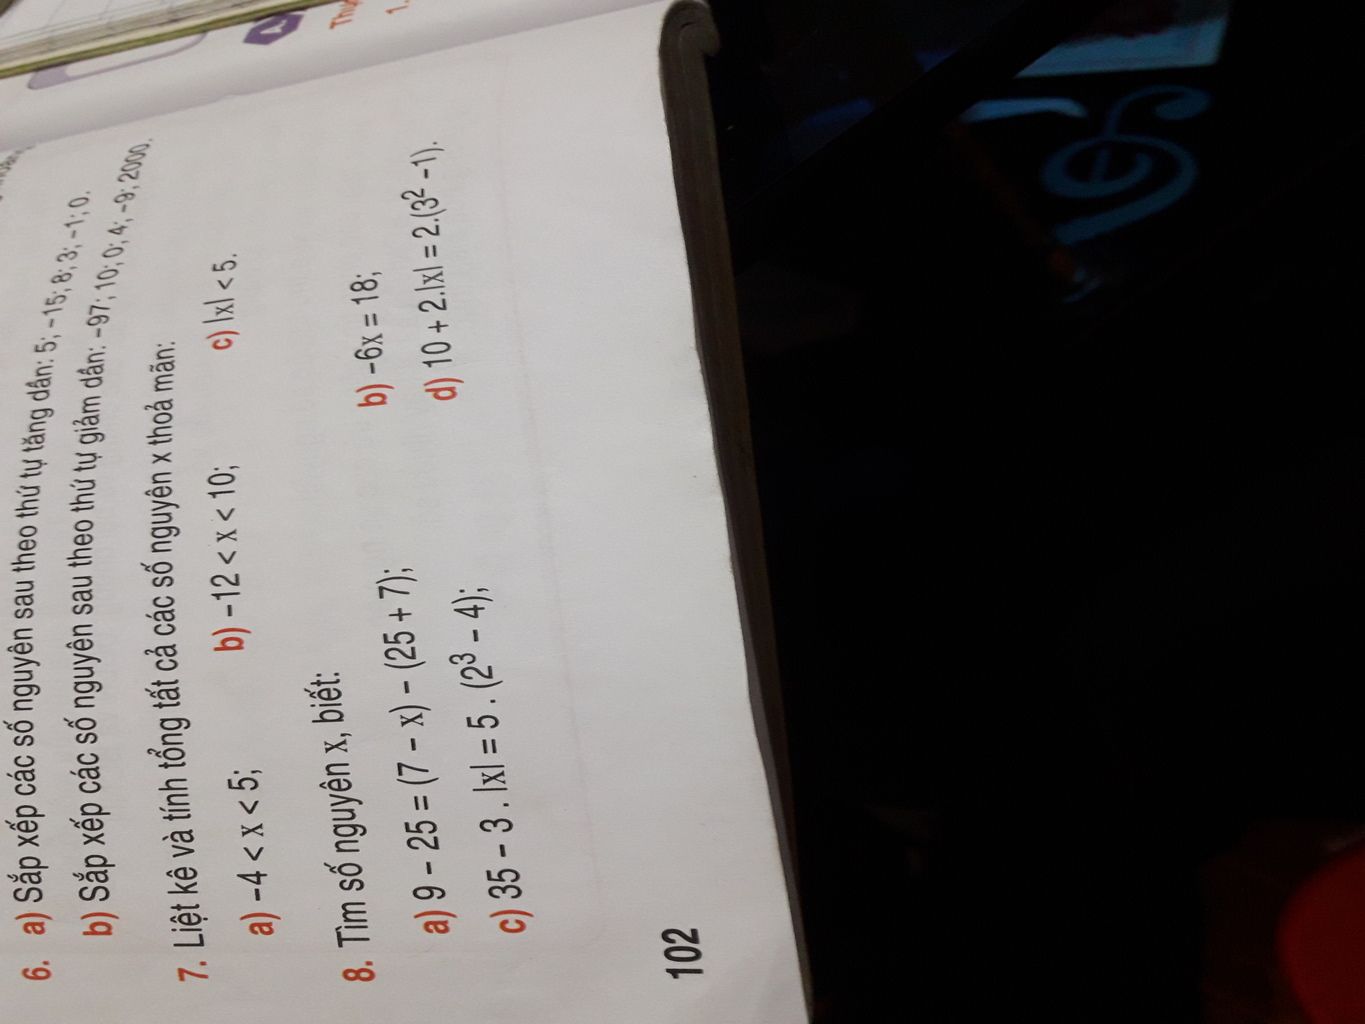 Thự
1.
6. a) Sắp xếp các số nguyên sau theo thứ tự tăng dần: 5; -15; 8; 3; -1; 0.
b) Sắp xếp các số nguyên sau theo thứ tự giảm dần: -97; 10; 0; 4; -9; 2000.
7. Liệt kê và tính tổng tất cả các số nguyên x thoả mãn:
a) -4 < x < 5; b) -12 < x < 10; c) |x| < 5.
8. Tìm số nguyên x, biết:
a) 9 - 25 = (7 - x) - (25 + 7); b) -6x = 18;
c) 35 - 3 . |x| = 5 . (2³ - 4); d) 10 + 2.|x| = 2.(3² -1).
102